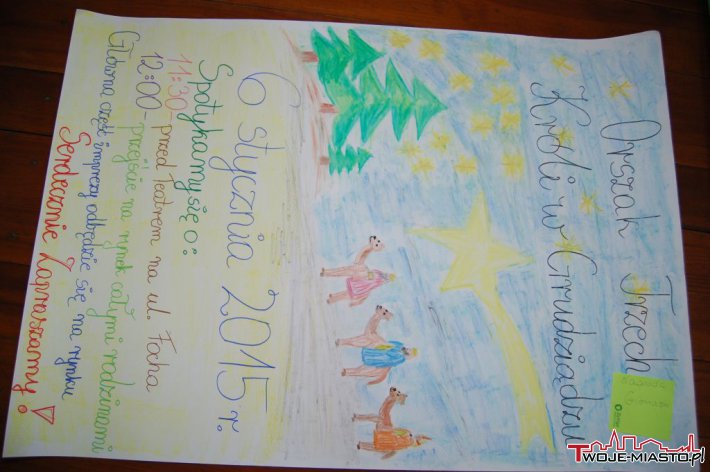 Orszak Trzech
Króli w Grudziądzu
6 stycznia 2015 r.
Spotykamy się o:
11:30 - przed Teatrem na ul. Focha
12:00 - przejście na rynek całymi rodzinami
Główna część imprezy odbędzie się na rynku
Serdecznie Zapraszamy!
TWOJE-MIASTO.pl